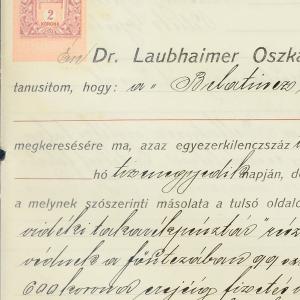 2
KORONA
Én Dr. Laubhaimer Oszká
tanusitom, hogy: a „Belatincz
megkeresésére ma, azaz egyezerkilenczszáz
hó tizenegyedik napján, de
a melynek szószerinti másolata a tulsó oldalo
vidéki takarékpénztár" rész
védnek a főutczában 99
600 korona erejéig fizetés